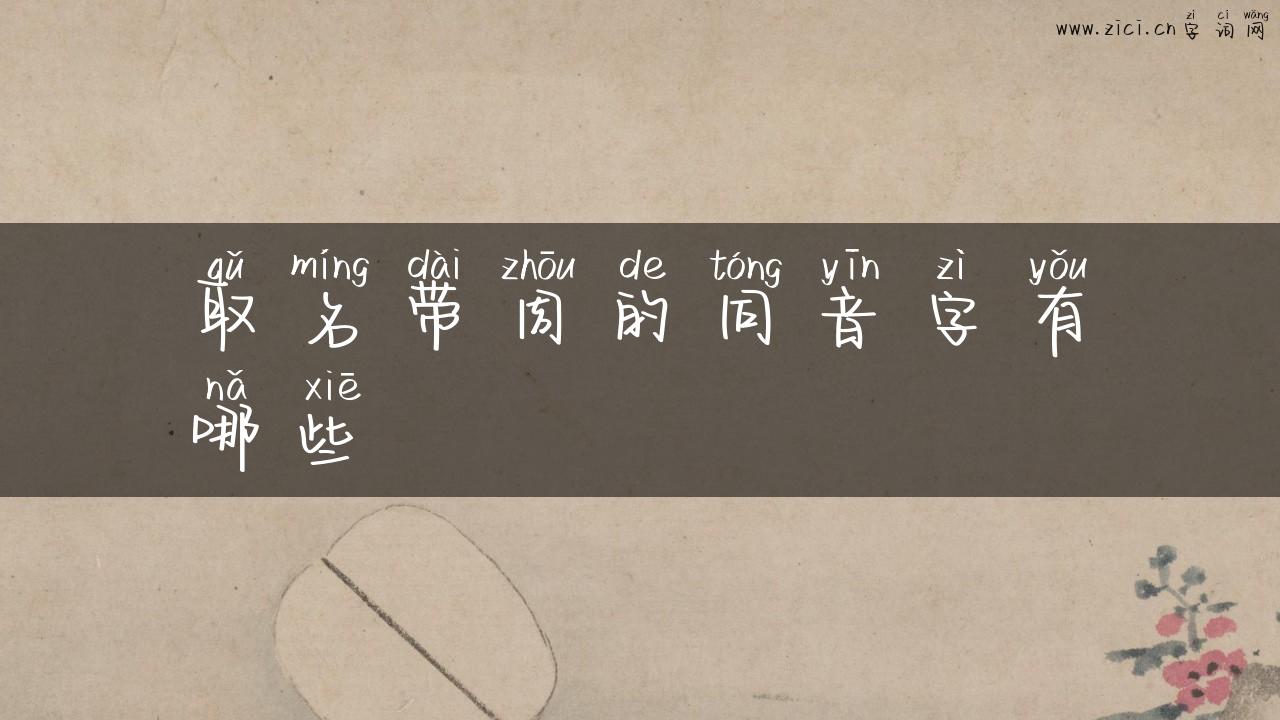 zì cí wǎng
www.zici.cn字词网
qǔ míng dài zhōu de tóng yīn zì yǒu
取名带周的同音字有
nǎ xiē
哪些